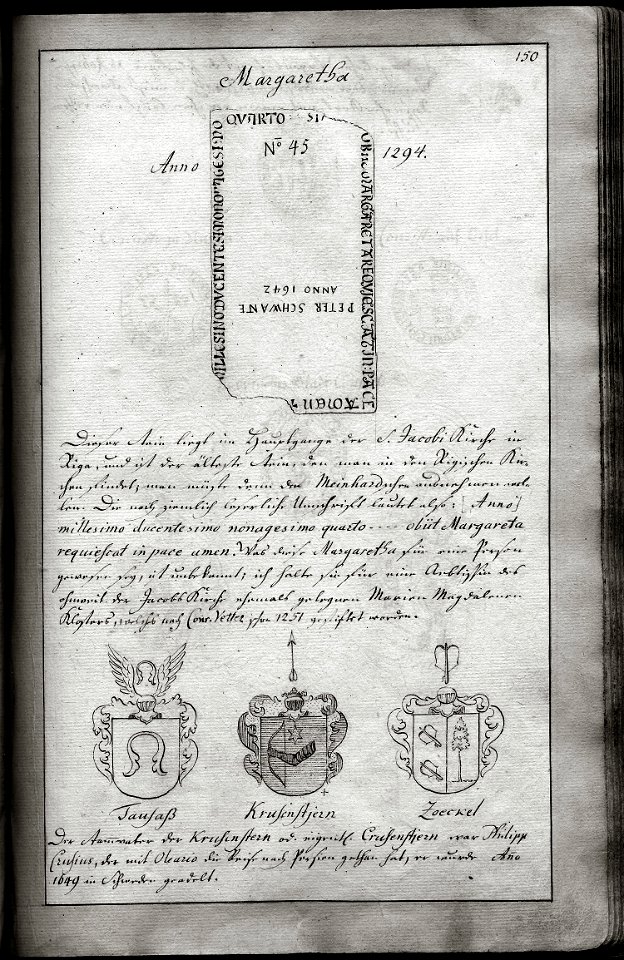 150
Margaretha
QVARTO
Anno
Nº 45
1294.
MILLESIMO DVCENTESIMO NONAGESIMO
OBIIT MARGARETA REQVIESCAT IN PACE
AMEN
PETER SCHWANE
ANNO 1642
Dieser Stein liegt im Hauptgange der S. Jacobi Kirche in
Riga, und ist der älteste Stein, den man in den Rigischen Kir-
chen findet; man müßte denn den Meinhardschen ausnehmen wol-
len. Die noch ziemlich leserliche Umschrift lautet also: [Anno]
millesimo ducentesimo nonagesimo quarto --- obiit Margareta
requiescat in pace amen. Was diese Margaretha für eine Person
gewesen sey, ist unbekannt; ich halte sie für eine Aebtißin des
ohnweit der Jacobs Kirche ehemals gelegnen Marien Magdalenen
Klosters, welches nach schon 1251 gestiftet worden.
Tausaß
Krusenstjern
Zoeckel
Der Stamvater der Krusenstern od. eigentl. Crusenstjern war Philipp
Crusius, der mit Oleario die Reise nach Persien gethan hat, er wurde Ano
1649 in Schweden geadelt.